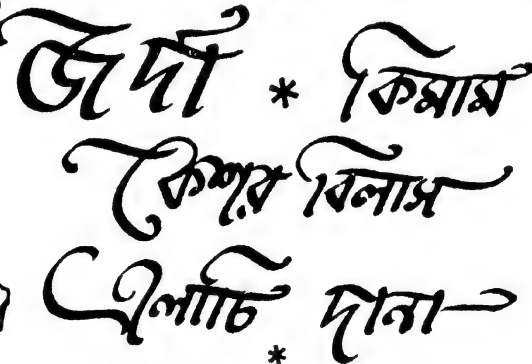 জর্দা * কিমাম
কেশর বিলাস
এলাচি দানা
*